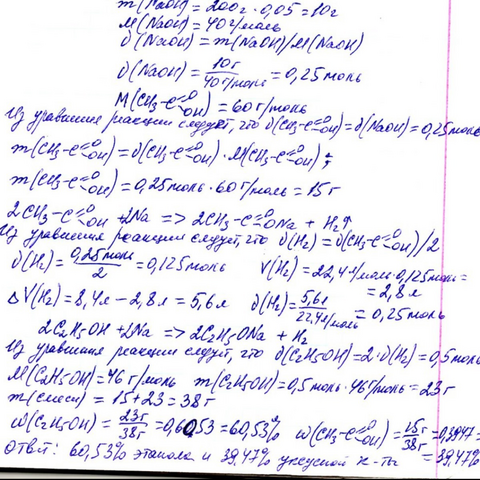 m(NaOH) = 200г · 0,05 = 10г
M(NaOH) = 40 г/моль
υ(NaOH) = m(NaOH)/M(NaOH)
υ(NaOH) = 10г/40г/моль = 0,25 моль
M(CH₃-C=O OH) = 60 г/моль
Из уравнения реакции следует, что υ(CH₃-C=O OH) = υ(NaOH) = 0,25 моль
m(CH₃-C=O OH) = υ(CH₃-C=O OH) · M(CH₃-C=O OH);
m(CH₃-C=O OH) = 0,25 моль · 60 г/моль = 15 г
2CH₃-C=O OH + 2Na => 2CH₃-C=O ONa + H₂↑
Из уравнения реакции следует, что υ(H₂) = υ(CH₃-C=O OH)/2
υ(H₂) = 0,25 моль/2 = 0,125 моль V(H₂) = 22,4 л/моль · 0,125 моль =
= 2,8 л
ΔV(H₂) = 8,4л – 2,8 л = 5,6 л υ(H₂) = 5,6л/22,4л/моль = 0,25 моль
2C₂H₅OH + 2Na => 2C₂H₅ONa + H₂
Из уравнения реакции следует, что υ(C₂H₅OH) = 2 · υ(H₂) = 0,5 моль
M(C₂H₅OH) = 46 г/моль m(C₂H₅OH) = 0,5 моль · 46 г/моль = 23 г
m(смеси) = 15 + 23 = 38 г
ω(C₂H₅OH) = 23г/38г = 0,6053 = 60,53% ω(CH₃-C=O OH) = 15г/38г = 0,3947 =
= 39,47%
Ответ: 60,53% этанола и 39,47% уксусной к-ты